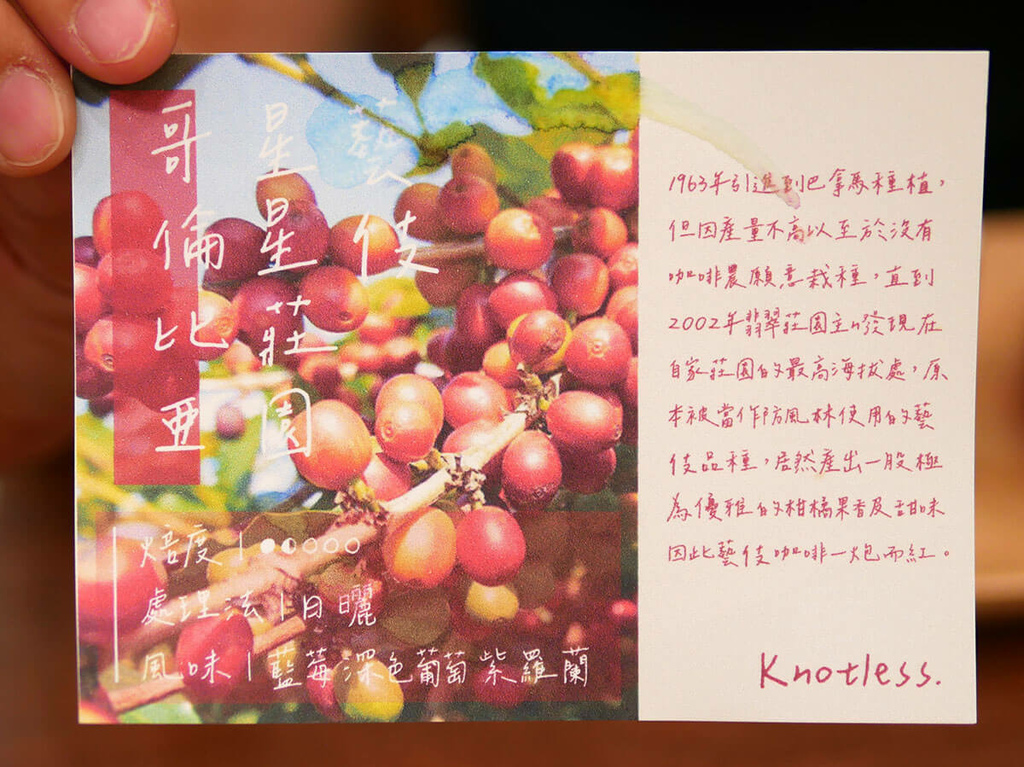 哥倫比亞
星星莊園
藝伎
焙度|●◐○○○○
處理法|日曬
風味|藍莓深色葡萄紫羅蘭
1963年引進到巴拿馬種植,
但因產量不高以至於沒有
咖啡農願意栽種,直到
2002年翡翠莊園主ㄌ發現在
自家莊園的最高海拔處,原
本被當作防風林使用的藝
伎品種,居然產出一股極
為優雅的柑橘果香及甜味
因此藝伎咖啡一炮而紅。
Knotless.